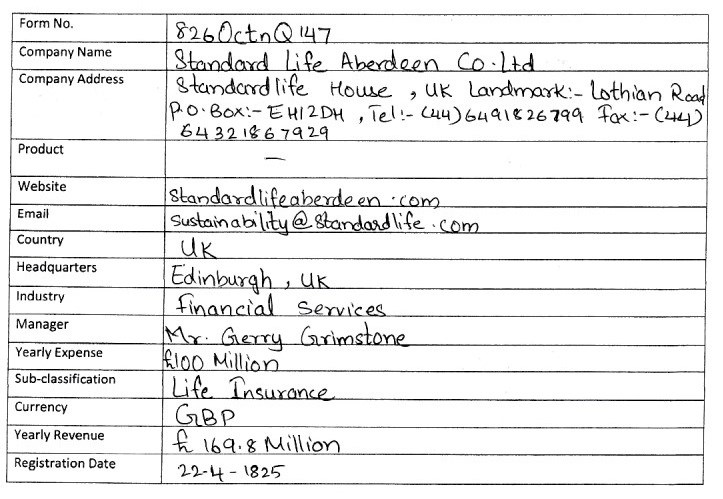 Form No. 826OctnQ147
Company Name Standard Life Aberdeen Co.Ltd
Company Address Standard life House , UK Landmark:- Lothian Road
P.O.Box:- EH12DH , Tel:- (44)6491826799 Fax:- (44)
64321867929
Product —
Website standardlifeaberdeen.com
Email sustainability@standardlife.com
Country UK
Headquarters Edinburgh , UK
Industry financial services
Manager Mr. Gerry Grimstone
Yearly Expense £100 Million
Sub-classification Life Insurance
Currency GBP
Yearly Revenue £ 169.8 Million
Registration Date 22-4-1825